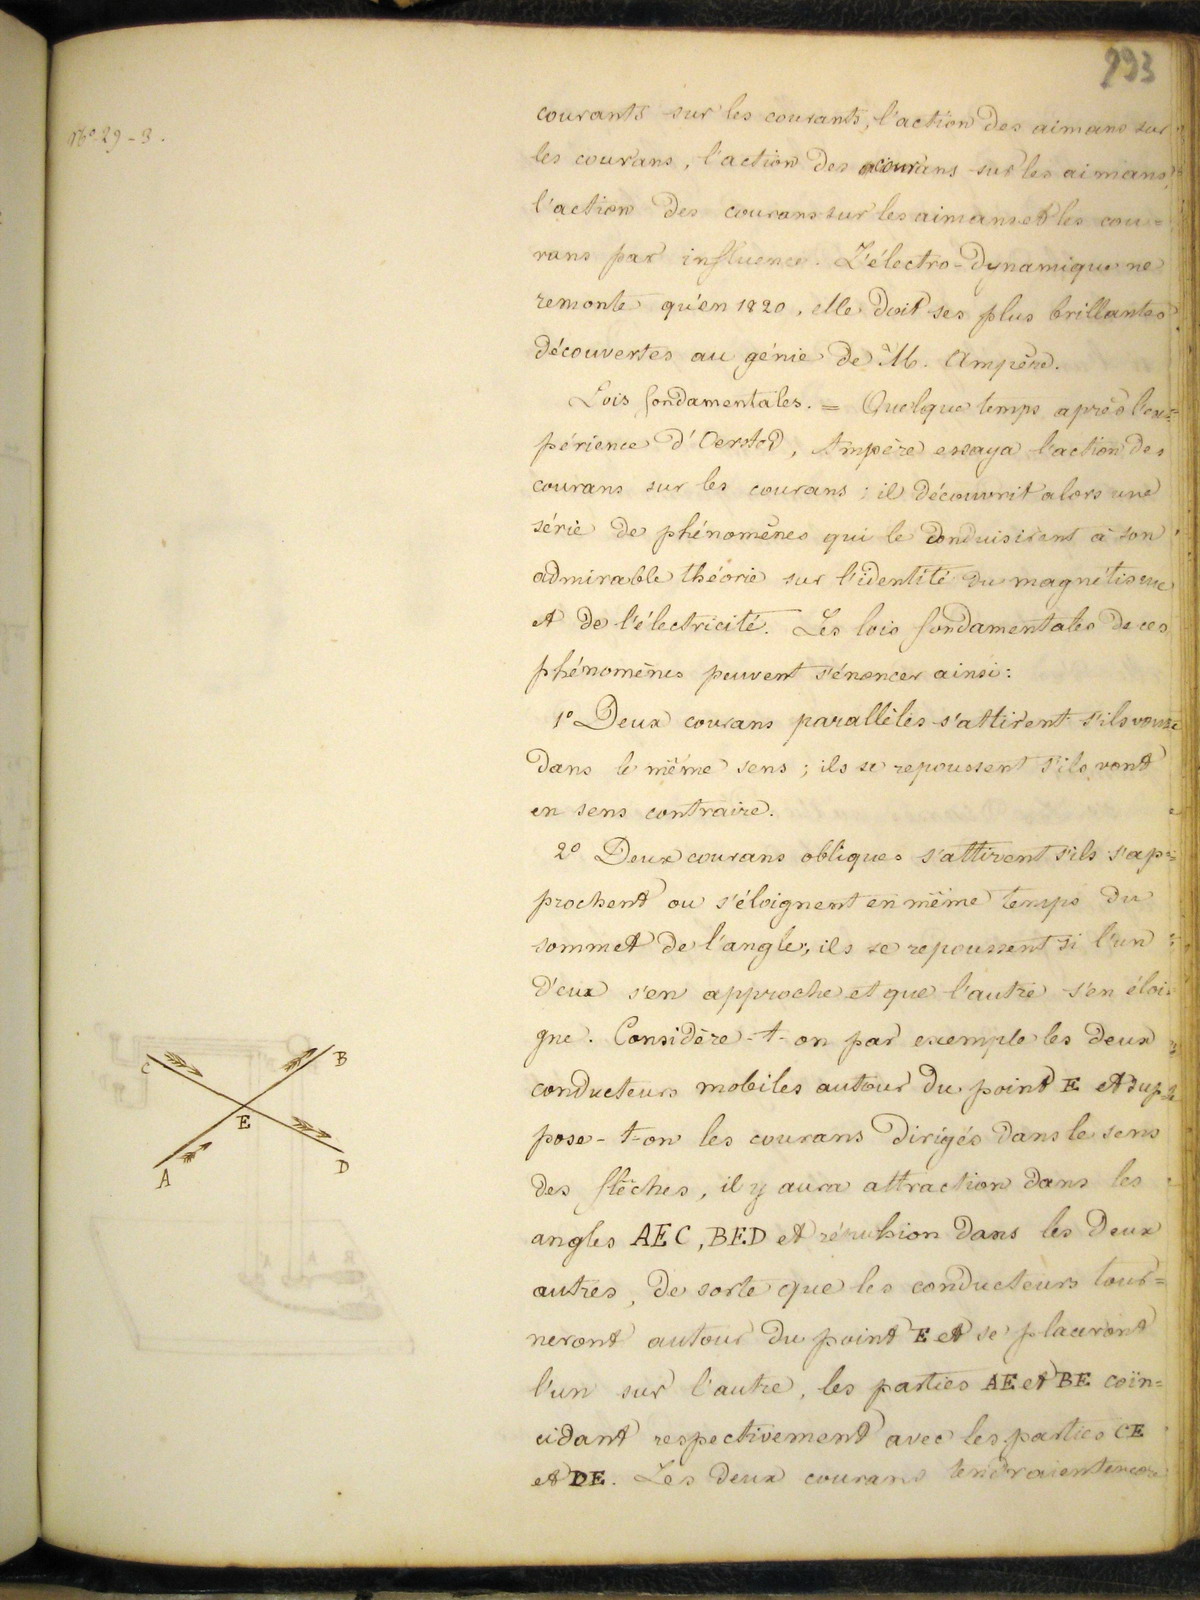 293
N.º 29-3.
courants sur les courants, l'action des aimans sur
les courans, l'action des courans sur les aimans,
l'action des courans sur les aimans et les cou=
rans par influence. L'électro-dynamique ne
remonte qu'en 1820, elle doit ses plus brillantes
découvertes au génie de M. Ampère.
Lois fondamentales. = Quelque temps après l'ex=
périence d'Oersted, Ampère essaya l'action des
courans sur les courans; il découvrit alors une
série de phénomènes qui le conduisirent à son
admirable théorie sur l'identité du magnétisme
et de l'électricité. Les lois fondamentales de ces
phénomènes peuvent s'énoncer ainsi:
1º Deux courans parallèles s'attirent s'ils vont
dans le même sens; ils se repoussent s'ils vont
en sens contraire.
2º Deux courans obliques s'attirent s'ils s'ap=
prochent ou s'éloignent en même temps du
sommet de l'angle; ils se repoussent si l'un
d'eux s'en approche et que l'autre s'en éloi=
gne. Considère-t-on par exemple les deux
conducteurs mobiles autour du point E et sup=
pose-t-on les courans dirigés dans le sens
des flèches, il y aura attraction dans les
angles AEC, BED et répulsion dans les deux
autres, de sorte que les conducteurs tour=
neront autour du point E et se placeront
l'un sur l'autre, les parties AE et BE coïn=
cidant respectivement avec les parties CE
et DE. Les deux courans tendraient encore
C
B
E
A
D